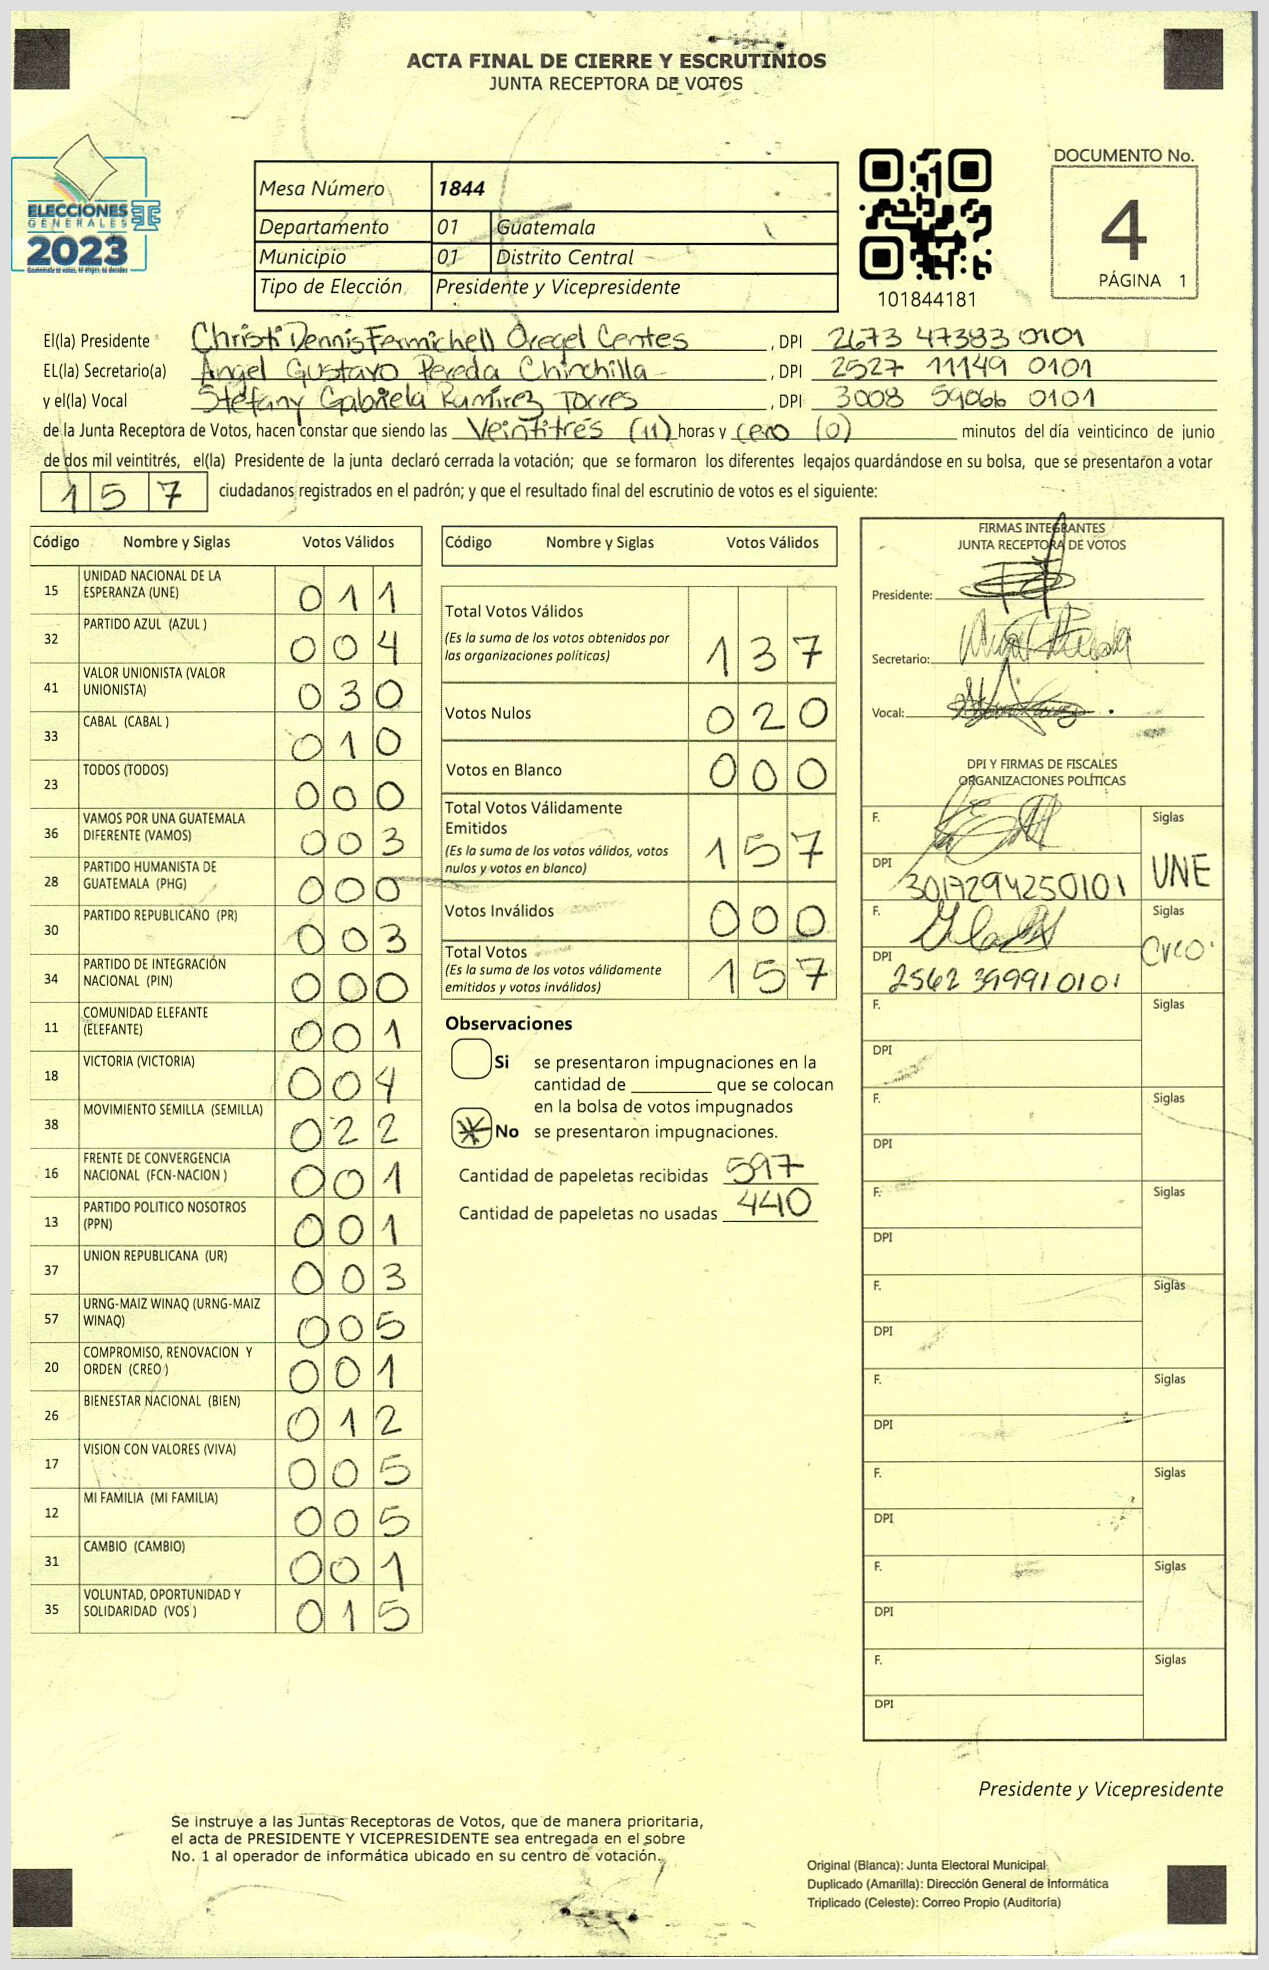 ACTA FINAL DE CIERRE Y ESCRUTINIOS
JUNTA RECEPTORA DE VOTOS
ELECCIONES
GENERALES
2023
Mesa Número 1844
Departamento 01 Guatemala
Municipio 01 Distrito Central
Tipo de Elección Presidente y Vicepresidente
101844181
DOCUMENTO No.
4
PÁGINA 1
El(la) Presidente Christi Dennis Fermichell Oregel Centes, DPI 2673 47383 0101
EL(la) Secretario(a) Angel Gustavo Pereda Chinchilla, DPI 2527 11149 0101
y el(la) Vocal Stefany Gabriela Ramírez Torres, DPI 3008 59066 0101
de la Junta Receptora de Votos, hacen constar que siendo las Veintitrés (11) horas y cero (0) minutos del día veinticinco de junio
de dos mil veintitrés, el(la) Presidente de la junta declaró cerrada la votación; que se formaron los diferentes legajos guardándose en su bolsa, que se presentaron a votar
157 ciudadanos registrados en el padrón; y que el resultado final del escrutinio de votos es el siguiente:
Código Nombre y Siglas Votos Válidos
15 UNIDAD NACIONAL DE LA ESPERANZA (UNE) 011
32 PARTIDO AZUL (AZUL ) 004
41 VALOR UNIONISTA (VALOR UNIONISTA) 030
33 CABAL (CABAL ) 010
23 TODOS (TODOS) 000
36 VAMOS POR UNA GUATEMALA DIFERENTE (VAMOS) 003
28 PARTIDO HUMANISTA DE GUATEMALA (PHG) 000
30 PARTIDO REPUBLICANO (PR) 003
34 PARTIDO DE INTEGRACIÓN NACIONAL (PIN) 000
11 COMUNIDAD ELEFANTE (ELEFANTE) 001
18 VICTORIA (VICTORIA) 004
38 MOVIMIENTO SEMILLA (SEMILLA) 022
16 FRENTE DE CONVERGENCIA NACIONAL (FCN-NACION ) 001
13 PARTIDO POLITICO NOSOTROS (PPN) 001
37 UNION REPUBLICANA (UR) 003
57 URNG-MAIZ WINAQ (URNG-MAIZ WINAQ) 005
20 COMPROMISO, RENOVACION Y ORDEN (CREO ) 001
26 BIENESTAR NACIONAL (BIEN) 012
17 VISION CON VALORES (VIVA) 005
12 MI FAMILIA (MI FAMILIA) 005
31 CAMBIO (CAMBIO) 001
35 VOLUNTAD, OPORTUNIDAD Y SOLIDARIDAD (VOS ) 015
Código Nombre y Siglas Votos Válidos
Total Votos Válidos 137
(Es la suma de los votos obtenidos por
las organizaciones politicas)
Votos Nulos 020
Votos en Blanco 000
Total Votos Válidamente
Emitidos 157
(Es la suma de los votos válidos, votos
nulos y votos en blanco)
Votos Inválidos 000
Total Votos 157
(Es la suma de los votos válidamente
emitidos y votos inválidos)
Observaciones
Si se presentaron impugnaciones en la
cantidad de ________ que se colocan
en la bolsa de votos impugnados
No se presentaron impugnaciones.
Cantidad de papeletas recibidas 597
Cantidad de papeletas no usadas 440
FIRMAS INTEGRANTES
JUNTA RECEPTORA DE VOTOS
Presidente:
Secretario:
Vocal:
DPI Y FIRMAS DE FISCALES
ORGANIZACIONES POLÍTICAS
F. Siglas
DPI 3017294250101 UNE
F. Siglas
DPI 2562 39991 0101 CREO
F. Siglas
DPI
F. Siglas
DPI
F. Siglas
DPI
F. Siglas
DPI
F. Siglas
DPI
F. Siglas
DPI
F. Siglas
DPI
F. Siglas
DPI
Presidente y Vicepresidente
Se instruye a las Juntas Receptoras de Votos, que de manera prioritaria,
el acta de PRESIDENTE Y VICEPRESIDENTE sea entregada en el sobre
No. 1 al operador de informática ubicado en su centro de votación.
Original (Blanca): Junta Electoral Municipal
Duplicado (Amarilla): Dirección General de Informática
Triplicado (Celeste): Correo Propio (Auditoría)